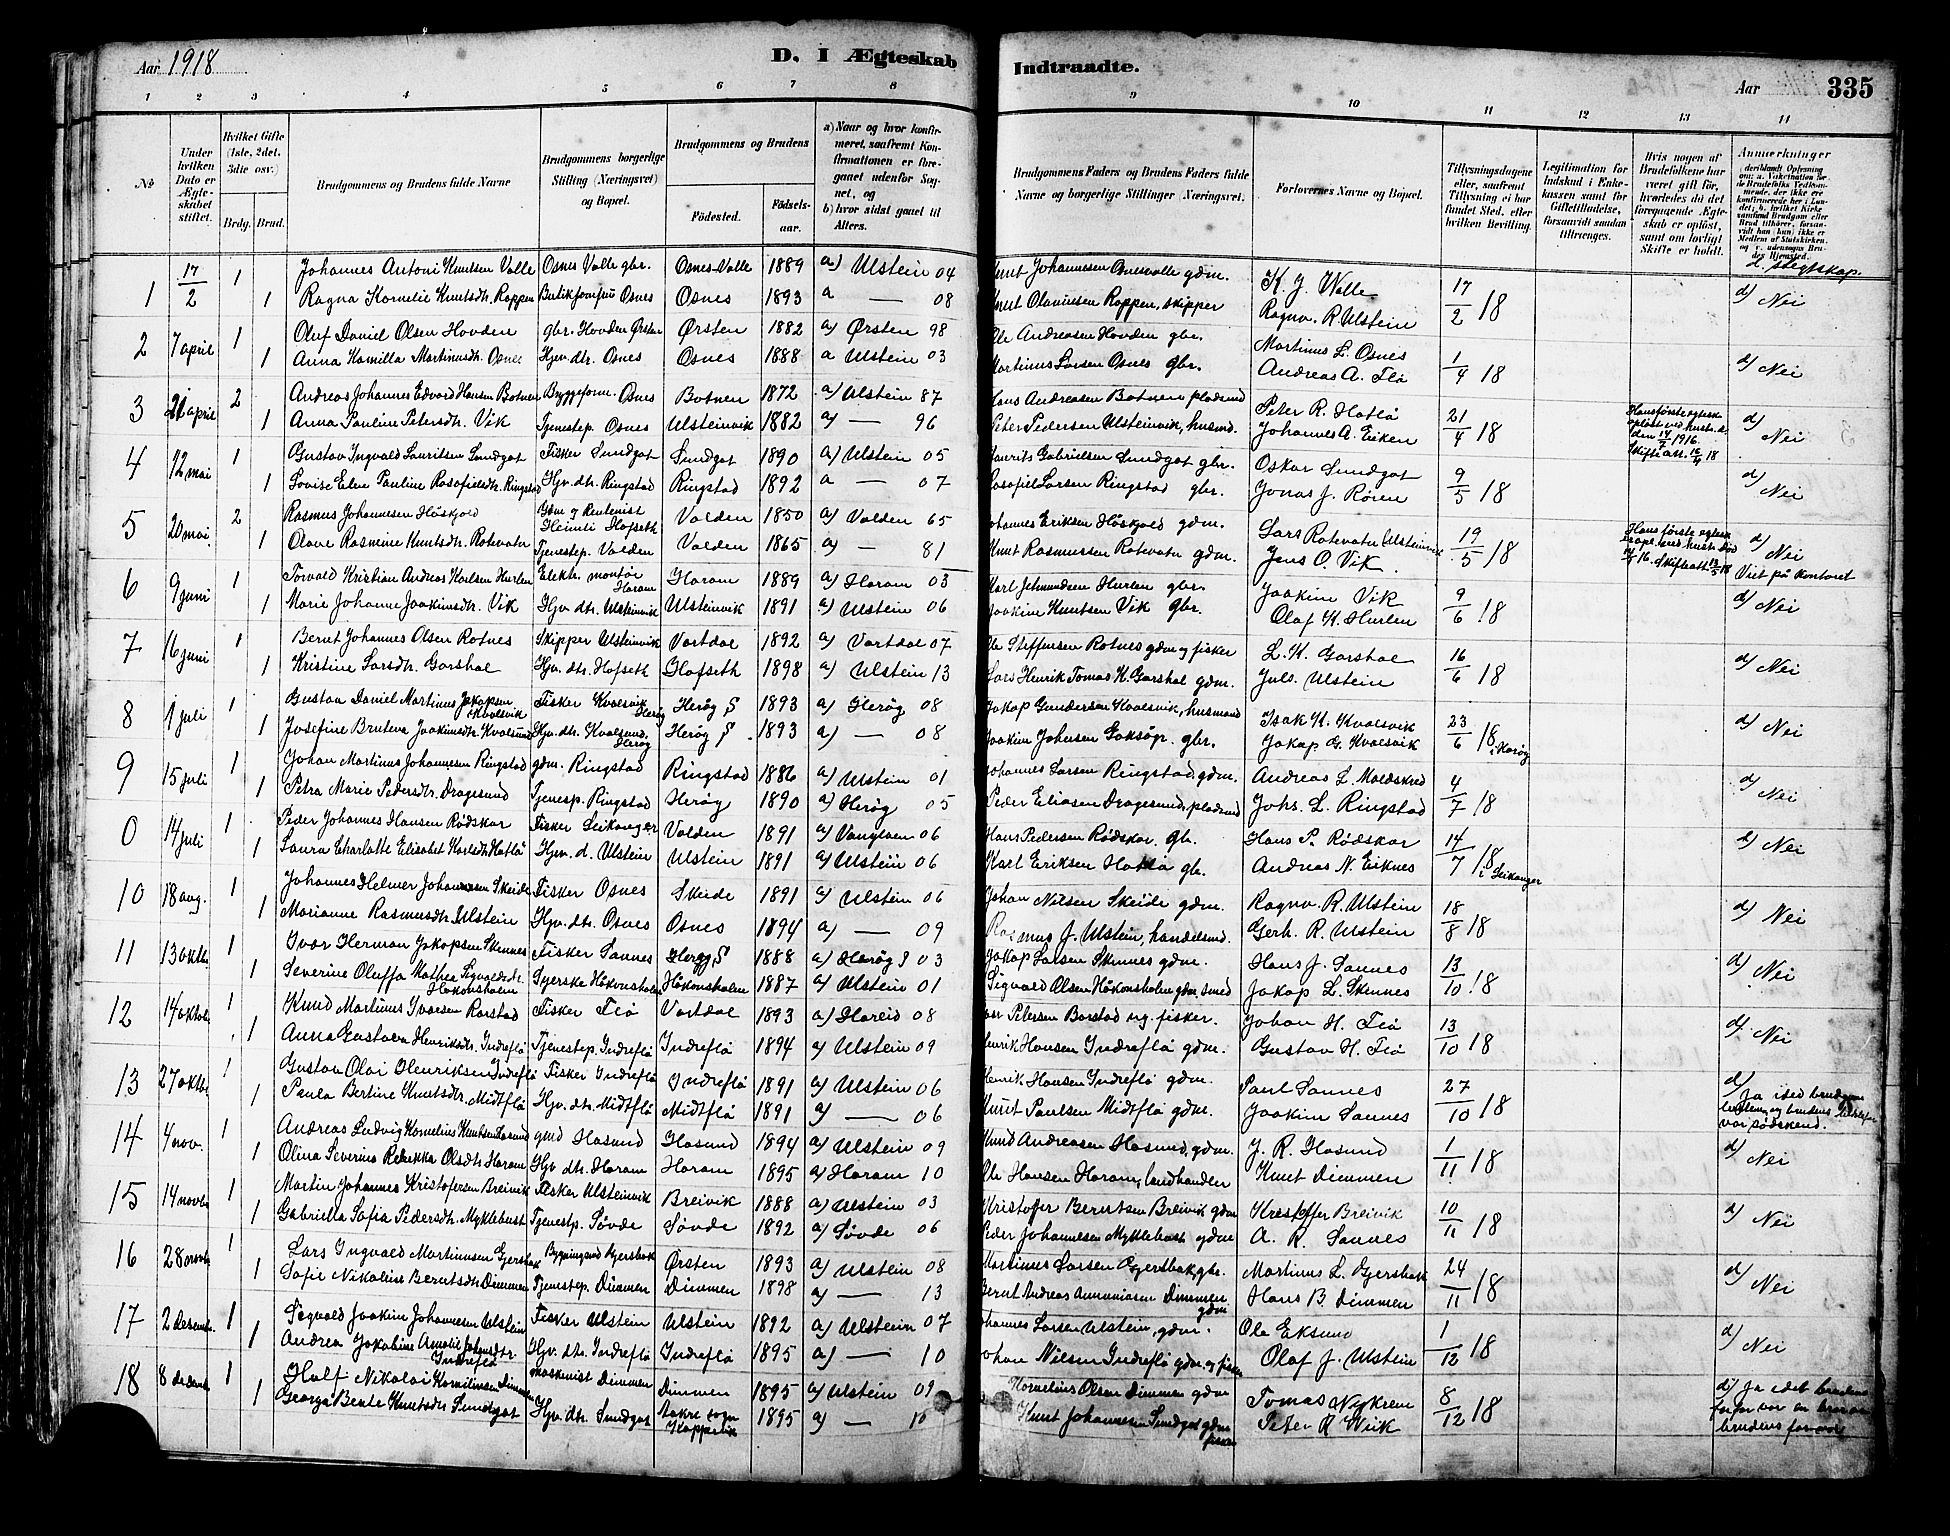 Aar 1918
D. I Ægteskab Indtraadte.
Aar 335
1 2 3 4 5 6 7 8 9 10 11 12 13 14
№
Under hvilken Dato er Ægteskabet stiftet.
Hvilket Gifte (1ste, 2det, 3die osv.)
Brdg. Brud.
Brudgommens og Brudens fulde Navne
Brudgommens borgerlige Stilling (Næringsvei) og Bopæl.
Brudgommens og Brudens
Fødested.
Fødselsaar.
a) Naar og hvor konfirmeret, saafremt Konfirmationen er foregaaet udenfor Sognet, og
b) hvor sidst gaaet til Alters.
Brudgommens Faders og Brudens Faders fulde Navne og borgerlige Stillinger (Næringsvei).
Forlovernes Navne og Bopæl.
Tillysningsdagene eller, saafremt Tillysning ei har fundet Sted, efter hvilken Bevilling.
Legitimation for Indskud i Enkekassen samt for Giftetilladelse, forsaavidt saadan tiltrænges.
Hvis nogen af Brudefolkene har været gift før, hvorledes da det foregaaende Ægteskab er opløst, samt om lovligt Skifte er holdt.
Anmærkninger
d. slegtskap
1 17/2 1 Johannes Antoni Knutsen Valle Osnes Valle gbr. Osnes-Valle 1889 a) Ulstein 04 Knut Johannessen Osnesvalle gdm. K. J. Valle 17/2 18
1 Ragna Kornelie Knutsdh. Roppen Butikjomfru Osnes Osnes 1893 a — 08 Knut Olausen Roppen, skipper Ragnv. R. Ulstein d) Nei
2 7 april 1 Oluf Daniel Olsen Hovden gbr. Hovden Ørsten Ørsten 1882 a) Ørsten 98 Ole Andreasen Hovden gbr. Martinus L. Osnes 1/4 18
1 Anna Kamilla Martinusdh. Osnes Hjv. dtr. Osnes Osnes 1888 a Ulstein 03 Martinus Larsen Osnes gbr. Andreas A. Flø d) Nei
3 21 april 2 Andreas Johannes Edvard Hansen Botnen Byggeform. Osnes Botnen 1872 a) Ulstein 87 Hans Andreasen Botnen pladsmd Peter R. Hatlø 21/4 18 Hans første egtesk. opløst ved hustr. d. den 14/7 1916. Skifteatt. 16/4 18
1 Anna Pauline Petersdh. Vik Tjenestep. Osnes Ulsteinvik 1882 a) — 96 Peter Pedersen Ulsteinvik, husmd. Johannes A. Eiken d) Nei
4 12 mai 1 Gustav Ingvald Lauritsen Sundgot Fisker Sundgot Sundgot 1890 a) Ulstein 05 Laurits Gabrielsen Sundgot gbr. Oskar Sundgot 9/5 18
1 Lovise Elve Pauline Rasafielsdh. Ringstad Hjv. dtr. Ringstad Ringstad 1892 a — 07 Rasafiel Larsen Ringstad gbr. Jonas J. Røren d) Nei
5 20 mai 2 Rasmus Johannesen Höskjold Gdm og Rentenist Heimli Hofseth Volden 1850 a) Volden 65 Johannes Eriksen Höskjold gdm. Lars Rotevatn Ulsteinvik 19/5 18 Hans første egtesk.
1 Olave Rasmine Knutsdh. Rotevatn Tjenestep. Volden Volden 1865 a) — 81 Knut Rasmussen Rotevatn gdm. Jens O. Vik. d) Nei Viet på kontoret
6 9 juni 1 Torvald Kristian Andreas Karlsen Hurlen Elektr. montör Haram Haram 1889 a) Haram 03 Karl Jetmundsen Hurlen gbr. Joakim Vik 9/6 18
1 Marie Johanne Joakimsdh. Vik Hjv. dtr. Ulsteinvik Ulsteinvik 1891 a) Ulstein 06 Joakim Knutsen Vik gbr. Olaf K. Hurlen d) Nei
7 16 juni 1 Bernt Johannes Olsen Rotnes Skipper Ulsteinvik Vartdal 1892 a) Vartdal 07 Ole Steffensen Rotnes gdm og fisker L. K. Garshol 16/6 18
1 Kristine Larsdh. Garshol Hjv. dtr. Hofseth Hofseth 1898 a) Ulstein 13 Lars Henrik Tomas K. Garshol gdm. Juls. Ulstein d) Nei
8 1 juli 1 Gustav Daniel Martinus Jakopsen Kvalsvik Fisker Kvalsvik Herøy Herøy S 1893 a) Herøy 08 Jakop Gundersen Kvalsvik, husmand Isak K. Kvalsvik 23/6 18 i Herøy
1 Josefine Bruteva Joakimsdh. Kvalsund Hjv. dtr. Kvalsund Herøy Herøy S 1893 a) — 08 Joakim Johnsen Goksøyr. gbr. Jakop G. Kvalsvik d) Nei
9 15 juli 1 Johan Martinus Johannesen Ringstad gdm. Ringstad Ringstad 1886 a) Ulstein 01 Johannes Larsen Ringstad, gdm. Andreas L. Moldskred 4/7 18
1 Petra Marie Pedersdh. Dragesund Tjenesp. Ringstad Herøy 1890 a) Herøy 05 Peder Eliasen Dragesund, pladsmd Johs. L. Ringstad d) Nei
0 14 juli 1 Peder Johannes Hansen Rødskar Fisker Leikanger Volden 1891 a) Vanylven 06 Hans Pedersen Rødskar. gb. Hans P. Rødskar 14/7 18 i Leikanger
1 Laura Charlotte Elisabet Karlsdh. Hatlø Hjv. d. Ulstein Ulstein 1891 a) Ulstein 06 Karl Eriksen Hatlø gb. Andreas N. Eiknes d) Nei
10 18 aug. 1 Johannes Helmer Johansen Skeide Fisker Osnes Skeide 1891 a) Ulstein 06 Johan Nilsen Skeide gdm. Ragnv. R. Ulstein 18/8 18
1 Marianne Rasmusdh. Ulstein Hjv. dtr. Osnes Osnes 1894 a) — 09 Rasmus J. Ulstein, handelsmd. Gerh. R. Ulstein d) Nei
11 13 oktb. 1 Ivar Herman Jakopsen Skinnes Fisker Sannes Herøy S 1888 a) Herøy S 03 Jakop Larsen Skinnes gdm. Hans J. Sannes 13/10 18
1 Severine Oluffa Mathea Sigvaldsdr. Håkonsholm Syerske Håkonsholm Håkonsholm 1887 a) Ulstein 01 Sigvald Olsen Håkonsholm gdm, smed Jakop L. Skinnes d) Nei
12 14 oktob. 1 Knud Martinus Ivarsen Barstad Fisker Flø Vartdal 1893 a) Hareid 08 Ivar Petersen Barstad og. fisker. Johan H. Flø 13/10 18
1 Anna Gustava Henriksdh. Indreflø Tjenestep. Indreflø Indreflø 1894 a) Ulstein 09 Henrik Hansen Indreflø gdm. Gustav H. Flø d) Nei
13 27 oktb. 1 Gustav Olai Olenriksen Indreflø Fisker Indreflø Indreflø 1891 a) Ulstein 06 Henrik Hansen Indreflø gdm. Paul Sannes 27/10 18 d) Ja idet brudgom
1 Paula Bertine Knutsdh. Midtflø Hjv. dtr. Midtflø Midtflø 1891 a) — 06 Knut Paulsen Midtflø gdm. Joakim Sannes og brudens var sødskend.
14 4 nov. 1 Andreas Ludvig Kornelius Knutsen Hasund gmd Hasund Hasund 1894 a) Ulstein 09 Knud Andreasen Hasund, gdm. J. R. Hasund 1/11 18 d) Nei
1 Olina Severina Rebekka Olsdh. Haram Hjv dtr. Haram Haram 1895 a) Haram 10 Ole Hansen Haram, landhanden Knut Dimmen
15 14 novb. 1 Martin Johannes Kristofersen Breivik Fisker Ulsteinvik Breivik 1888 a) Ulstein 03 Kristofer Berntsen Breivik gdm Kristoffer Breivik 10/11 18
1 Gabriella Sofia Pedersdh. Myklebust Tjenestp. Søvde Søvde 1892 a) Søvde 06 Peder Johannesen Myklebust gdm A. R. Sannes d) Nei
16 28 novb. 1 Lars Ingvald Martinusen Gjersbak Bygningsmd Gjersbak Ørsten 1893 a) Ulstein 08 Martinus Larsen Gjersbak, gbr. Martinus L. Gjersbak 24/11 18
1 Sofie Nikoline Berntsdh Dimmen Tjenestep. Dimmen Dimmen 1898 a) — 13 Bernt Andreas Ammuniasen Dimmen gdm Hans B. Dimmen d) Nei
17 2 desemb. 1 Sigvald Joakim Johannesen Ulstein Fisker Ulstein Ulstein 1892 a) Ulstein 07 Johannes Larsen Ulstein, gdm. Ole Eksund 1/12 18
1 Andrea Jakobine Amalie Johansdtr. Indreflø Hjv. dtr. Indreflø Indreflø 1895 a) — 10 Johan Nilsen Indreflø gdm. og fisker Olaf J. Ulstein d) Nei
18 8 desemb 1 Half Nikolai Kornelinsen Dimmen maskenist Dimmen Dimmen 1895 a) Ulstein 09 Kornelius Olsen Dimmen gdm Tomas Nykrem 8/12 18 d) Ja idet brudens
1 Georga Bente Knutsdh Sundgot Hjv. dtr. Sundgot Koppervik 1895 a) — 10 Knut Johannesen Sundgot gdm fisker Peter K Wiik farfar var en bror av brudens farmor